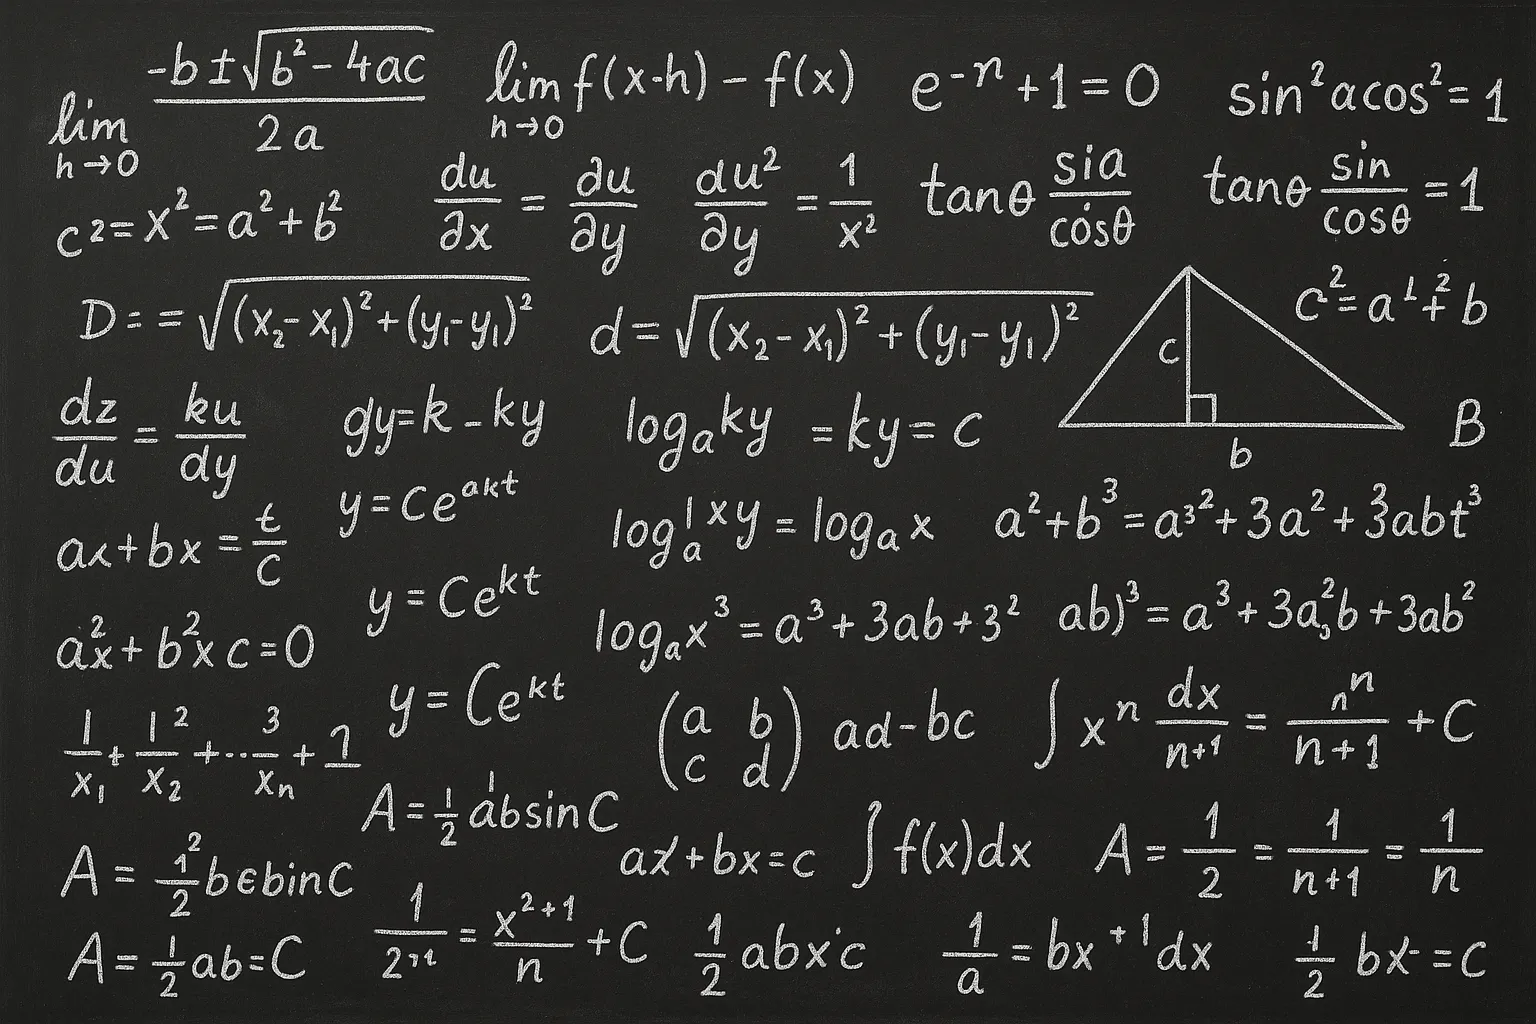 lim h→0 -b±√b²-4ac / 2a
lim h→0 f(x-h) - f(x)
e⁻ⁿ+1=0
sin²acos²=1
c²=x²=a²+b²
du/∂x = ∂u/∂y
du²/∂y = 1/x²
tanθ sia/cosθ
tanθ sin/cosθ =1
D== √(x₂-x₁)²+(y₁-y₁)²
d=√(x₂-x₁)²+(y₁-y₁)²
c
b
c²=a¹+²b
B
dz/du = ku/dy
gy=k-ky
logₐky =ky=c
y=Ceᵃᵏᵗ
ax+bx=t/c
logₐ¹xy=logₐx
a²+b³=a³²+3a²+3abt³
y=Ceᵏᵗ
a²x+b²xc=0
logₐx³=a³+3ab+3²
ab)³=a³+3a²b+3ab²
y=Ceᵏᵗ
1/x₁+1²/x₂+...3/xₙ+1
(a b
c d) ad-bc
∫xⁿ dx/n+1 = nⁿ/n+1 +C
A=½absinC
A=½²bebinC
ax+bx=c
∫f(x)dx
A=1/2=1/n+1=1/n
A=½ab=C
= x²⁺¹/n +C
½abx·c
1/a=bx⁺¹dx
½ bx=c